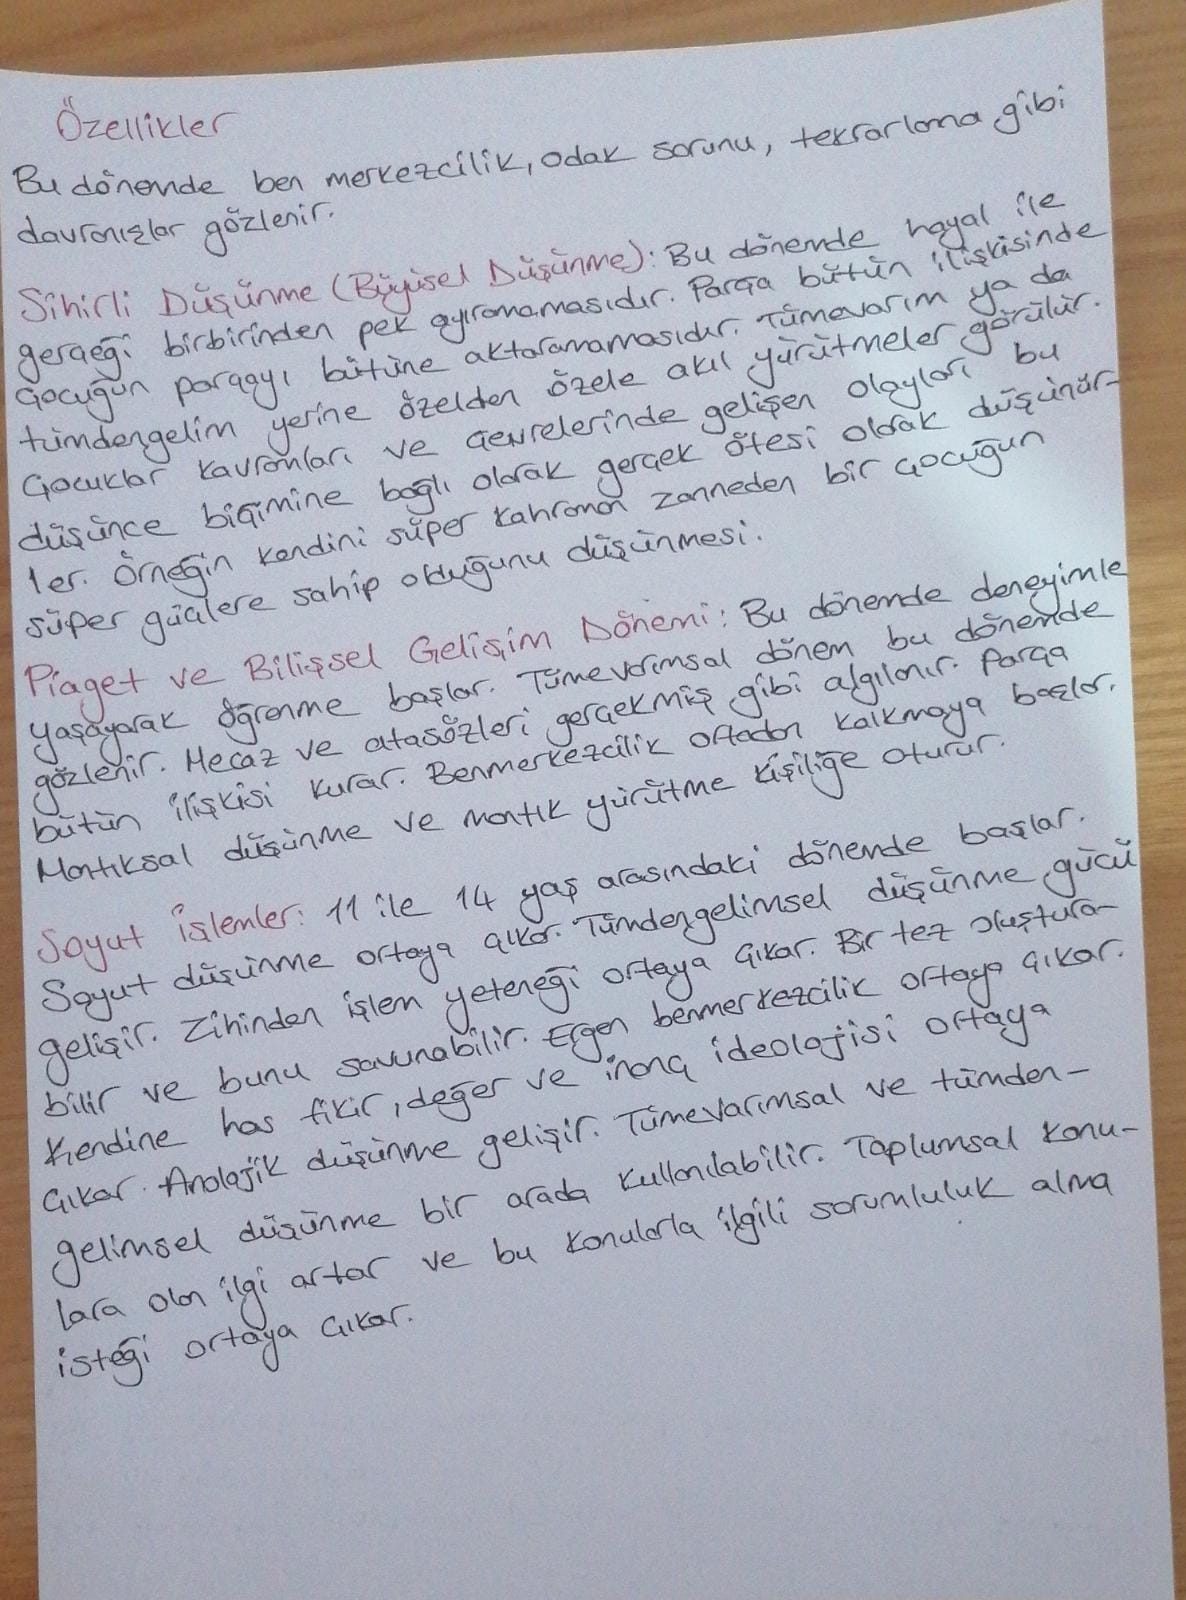 Özellikler
Bu dönemde ben merkezcilik, odak sorunu, tekrarlama gibi
davranışlar gözlenir.
Sihirli Düşünme (Büyüsel Düşünme): Bu dönemde hayal ile
gerçeği birbirinden pek ayıramamasıdır. Parça bütün ilişkisinde
çocuğun parçayı bütüne aktaramamasıdır. Tümevarım ya da
tümdengelim yerine özelden özele akıl yürütmeler görülür.
Çocuklar kavramları ve çevrelerinde gelişen olayları bu
düşünce biçimine bağlı olarak gerçek ötesi olarak düşünür-
ler. Örneğin kendini süper kahraman zanneden bir çocuğun
süper güçlere sahip olduğunu düşünmesi.
Piaget ve Bilişsel Gelişim Dönemi: Bu dönemde deneyimle
yaşayarak öğrenme başlar. Tümevarımsal dönem bu dönemde
gözlenir. Mecaz ve atasözleri gerçekmiş gibi algılanır. Parça
bütün ilişkisi kurar. Benmerkezcilik ortadan kalkmaya başlar.
Mantıksal düşünme ve mantık yürütme kişiliğe oturur.
Soyut işlemler: 11 ile 14 yaş arasındaki dönemde başlar.
Soyut düşünme ortaya çıkar. Tümdengelimsel düşünme gücü
gelişir. Zihinden işlem yeteneği ortaya çıkar. Bir tez oluştura-
bilir ve bunu savunabilir. Ergen benmerkezcilik ortaya çıkar.
Kendine has fikir, değer ve inanç ideolojisi ortaya
çıkar. Analojik düşünme gelişir. Tümevarımsal ve tümden-
gelimsel düşünme bir arada kullanılabilir. Toplumsal konu-
lara olan ilgi artar ve bu konularla ilgili sorumluluk alma
isteği ortaya çıkar.